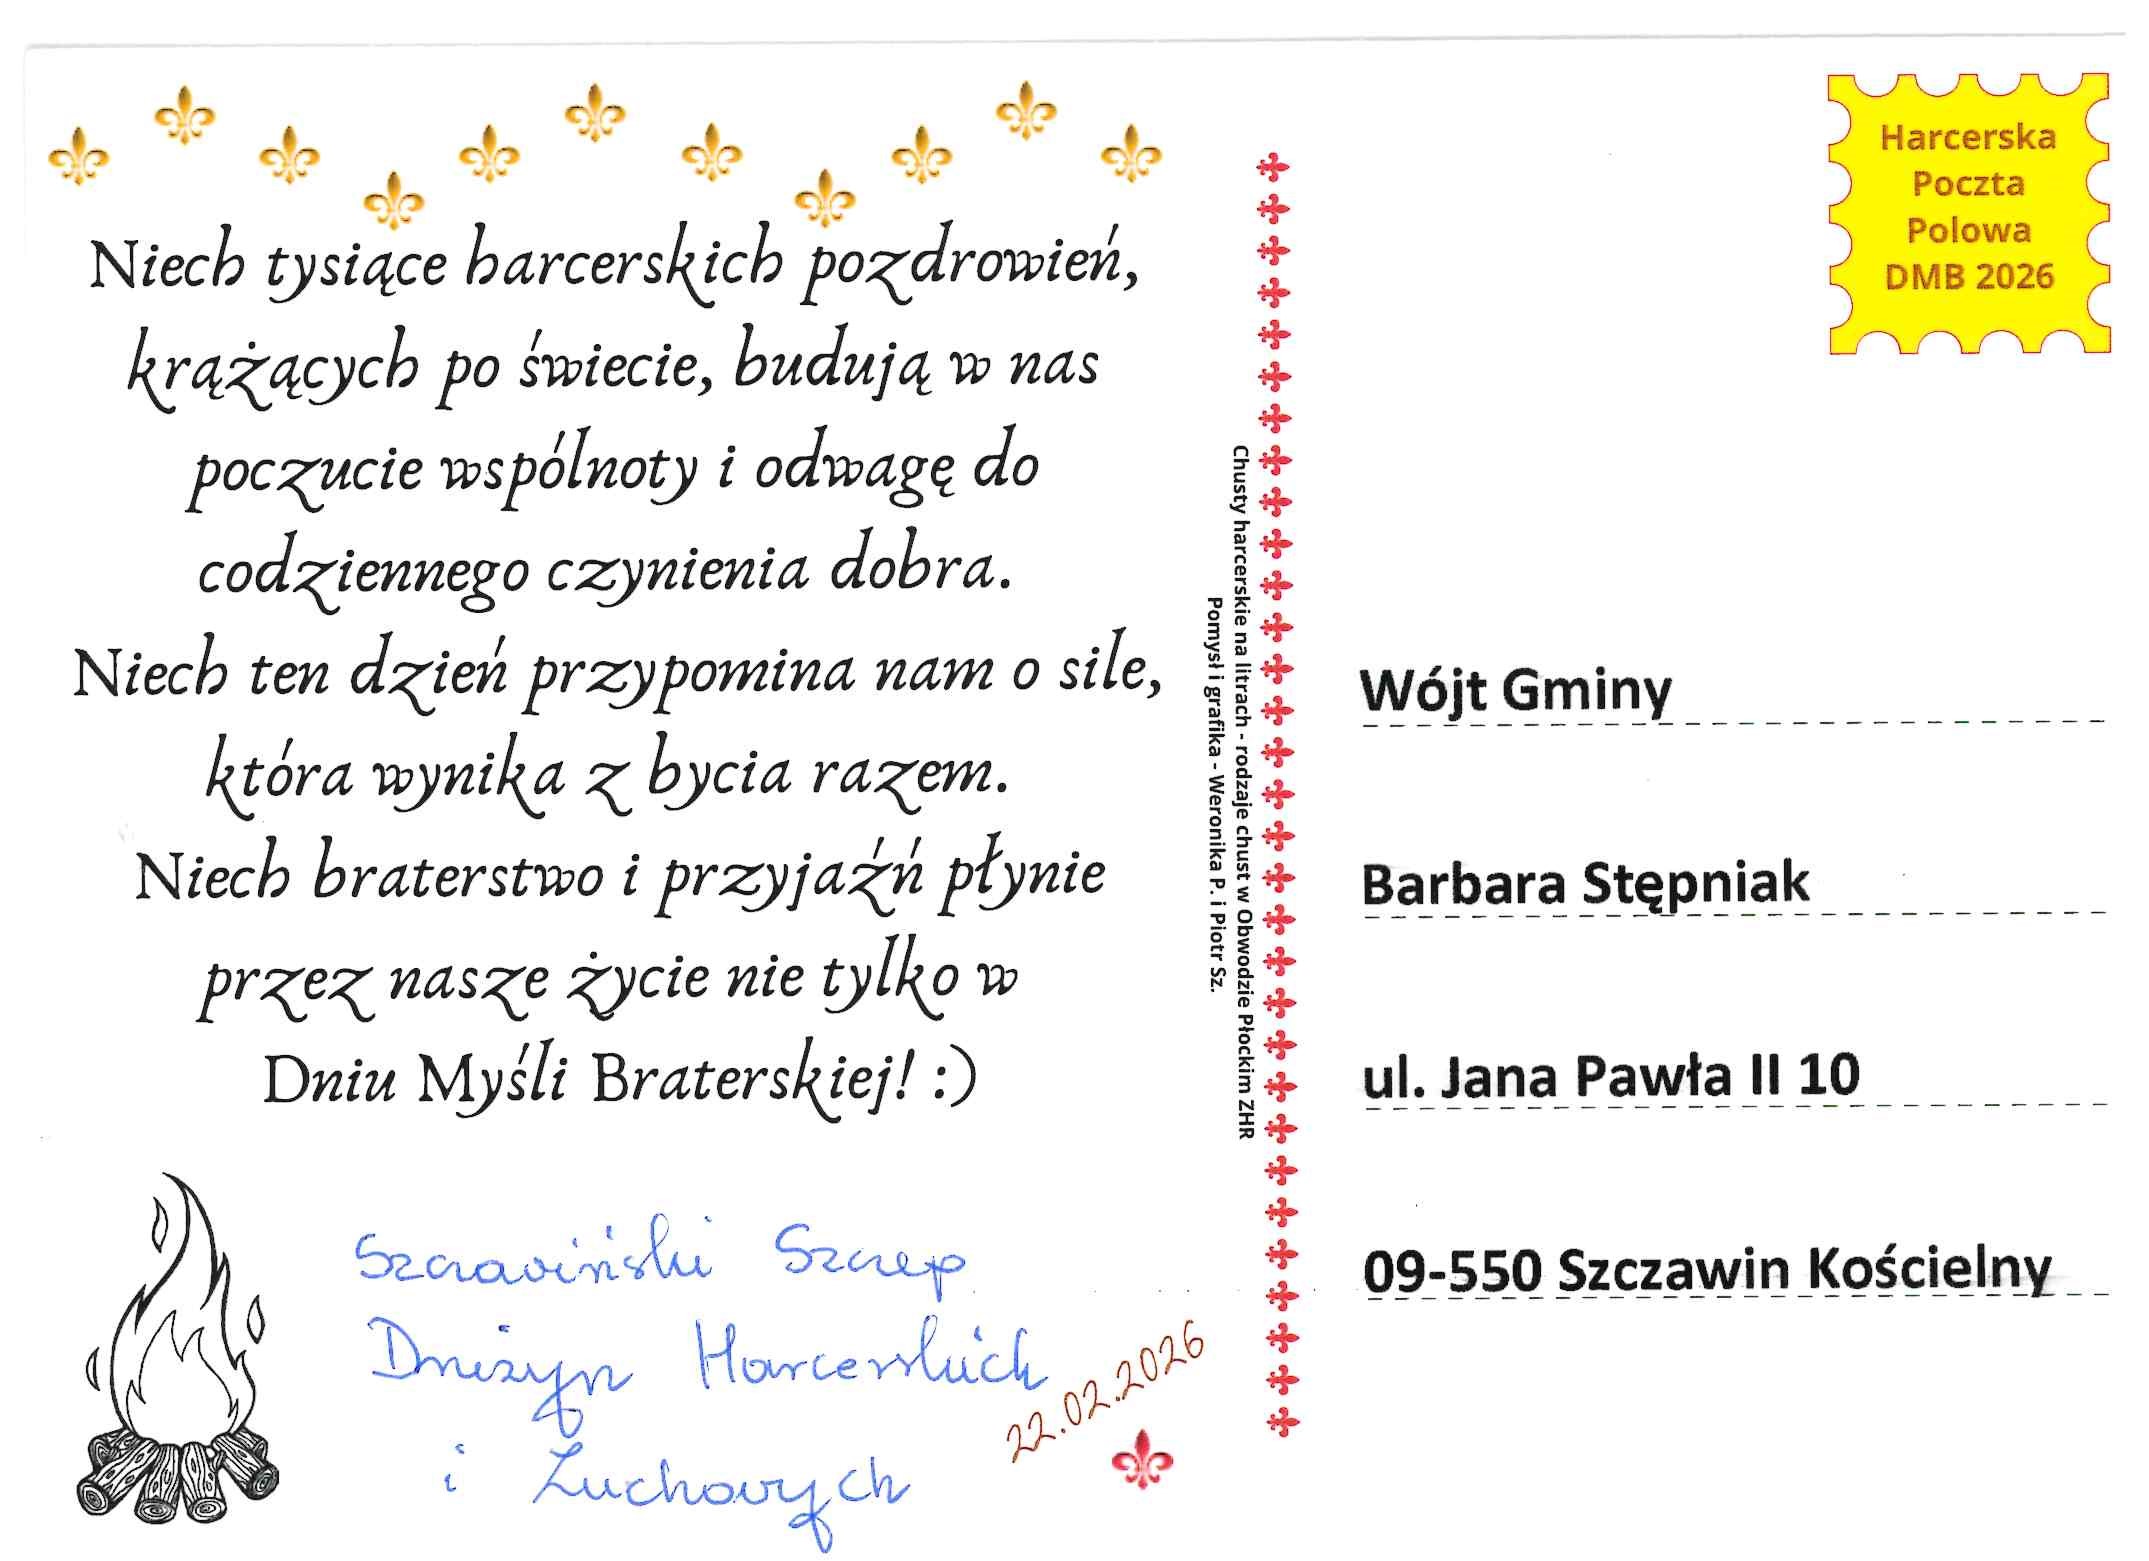 Niech tysiące harcerskich pozdrowień,
krążących po świecie, budują w nas
poczucie wspólnoty i odwagę do
codziennego czynienia dobra.
Niech ten dzień przypomina nam o sile,
która wynika z bycia razem.
Niech braterstwo i przyjaźń płynie
przez nasze życie nie tylko w
Dniu Myśli Braterskiej! :)
Szczawiński Szczep
Drużyn Harcerskich
i Zuchowych
22.02.2026
Chusty harcerskie na litrach - rodzaje chust w Obwodzie Płockim ZHR
Pomysł i grafika - Weronika P. i Piotr Sz.
Harcerska
Poczta
Polowa
DMB 2026
Wójt Gminy
Barbara Stępniak
ul. Jana Pawła II 10
09-550 Szczawin Kościelny